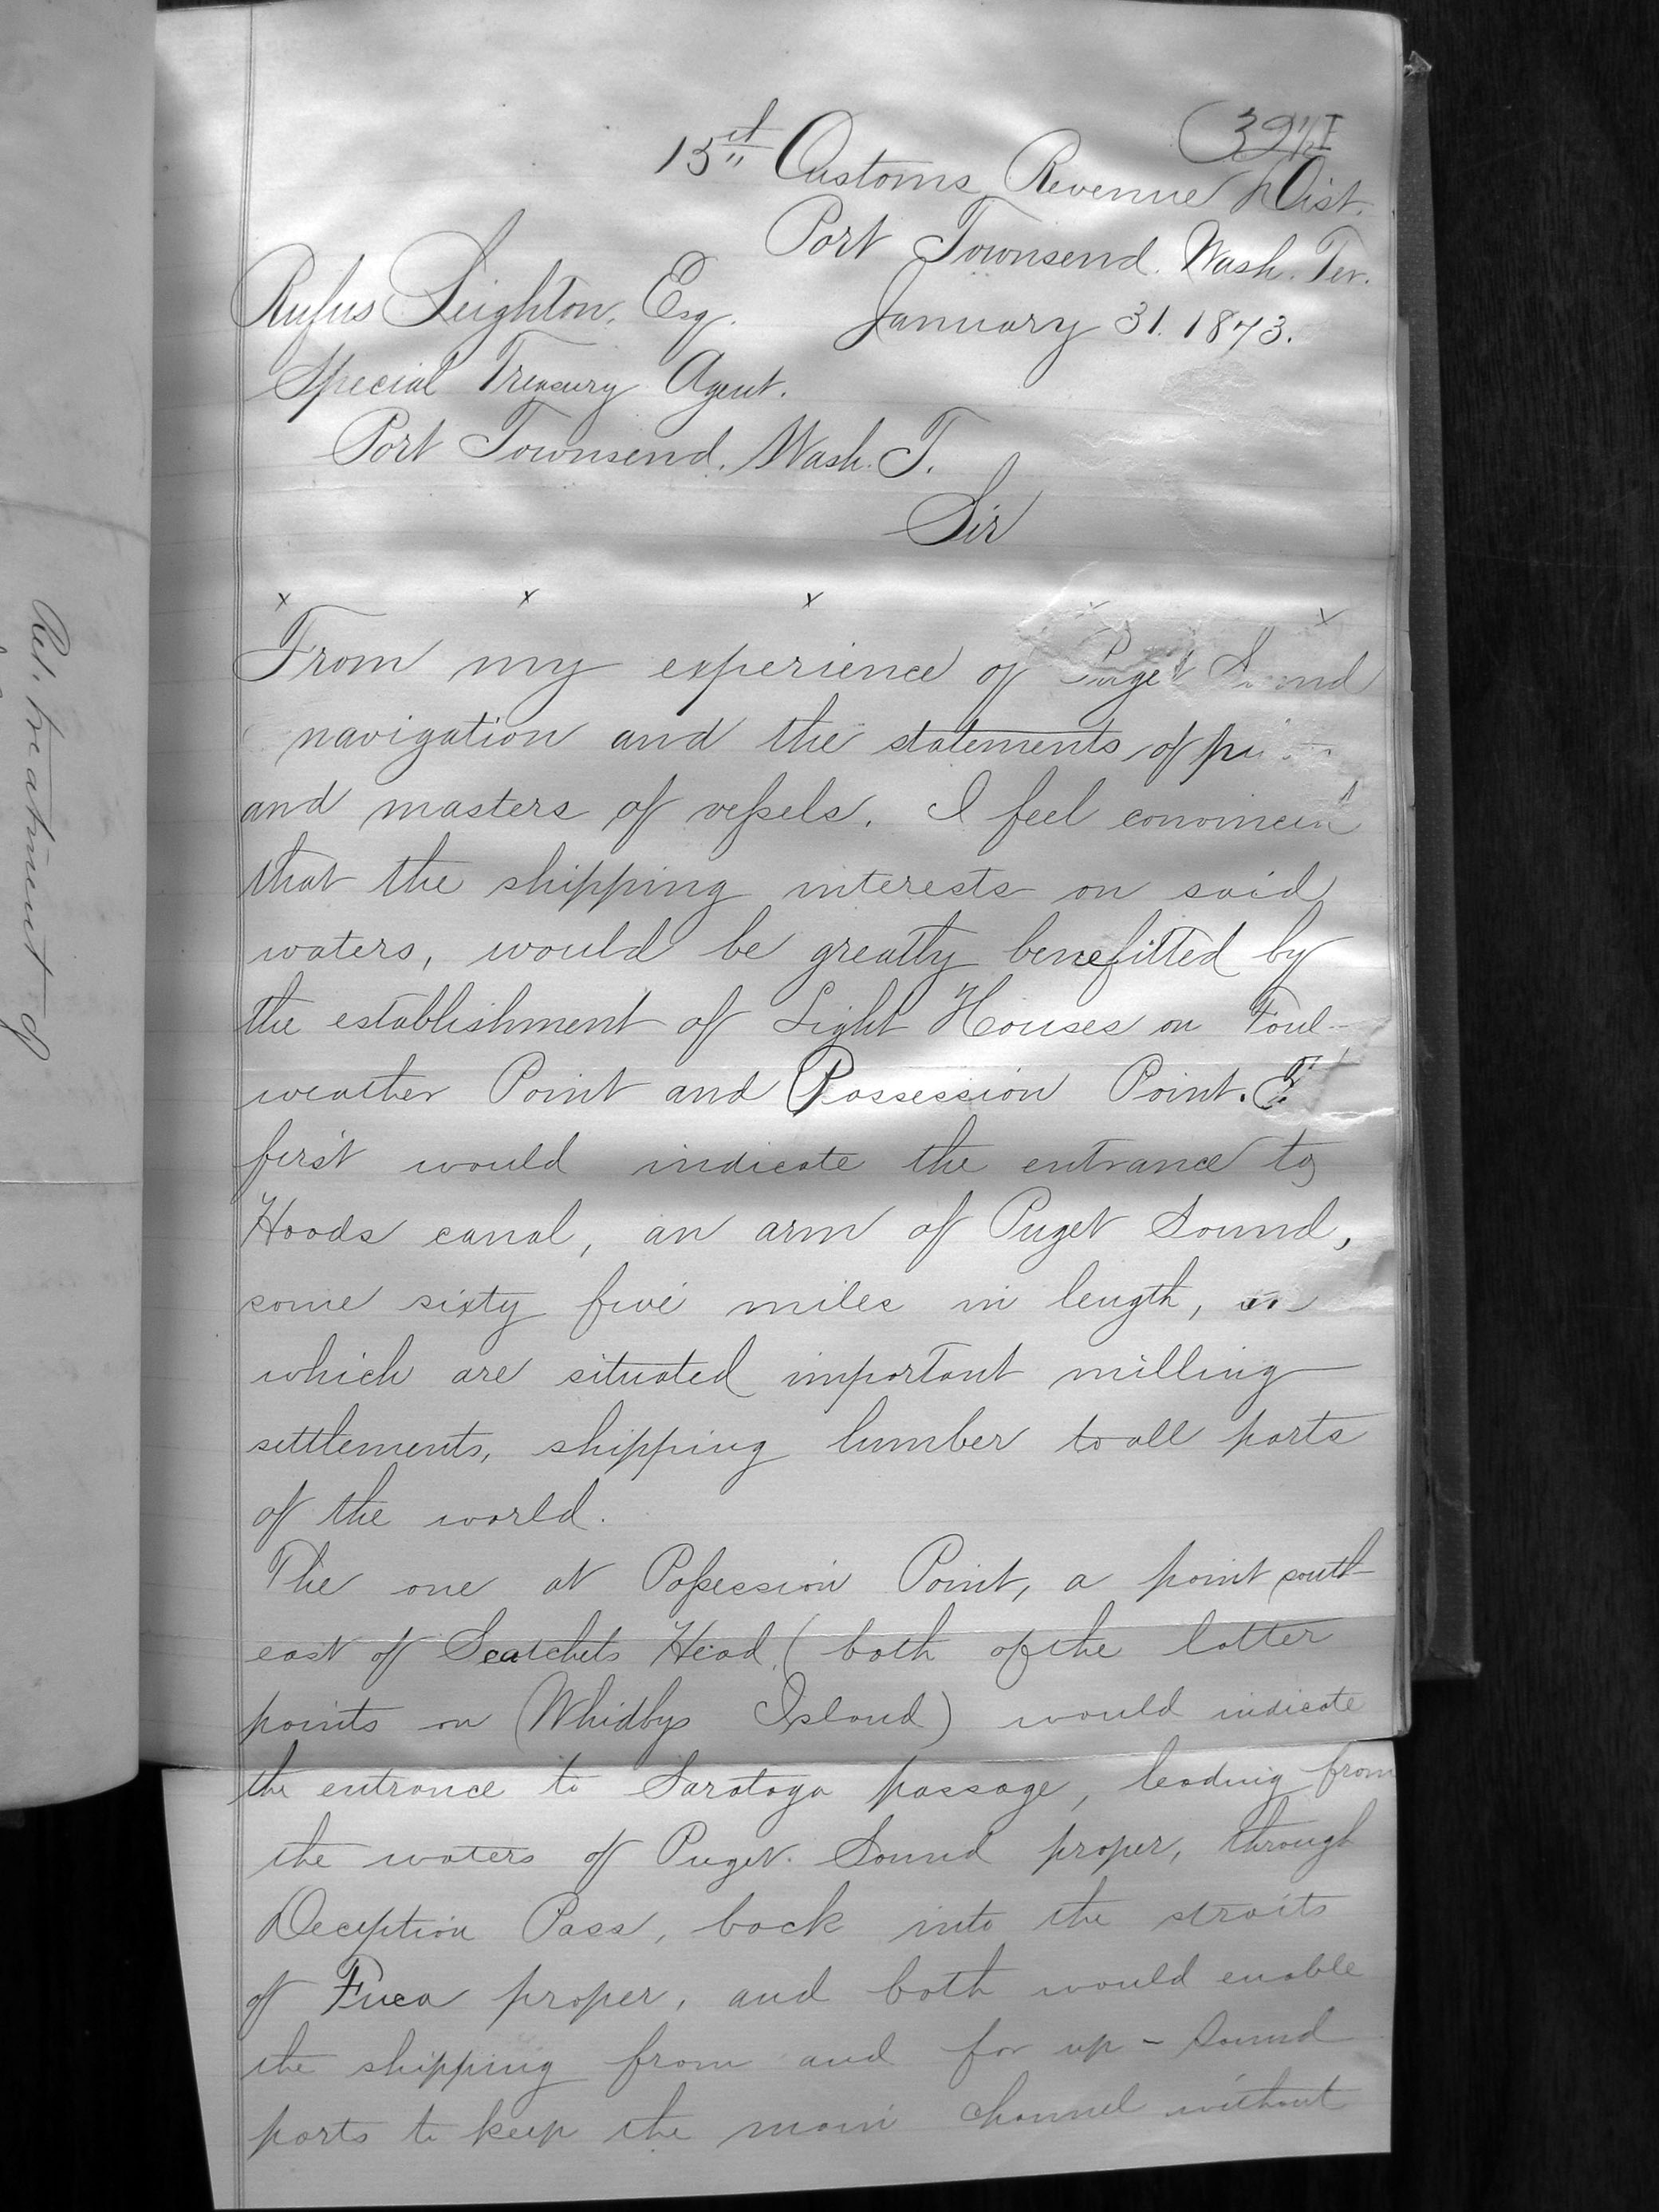 (39½ I
15st Customs Revenue Dist.
Port Townsend. Wash. Ter.
January 31. 1873.
Rufus Leighton, Esq.
Special Treasury Agent.
Port Townsend. Wash. T.
Sir
x x x x x
From my experience of Puget Sound
navigation and the statements of
and masters of vessels. I feel convinced
that the shipping interests on said
waters, would be greatly benefitted by
the establishment of Light Houses on Foul-
weather Point and Possession Point.
first would indicate the entrance to
Hoods canal, an arm of Puget Sound,
some sixty five miles in length, on
which are situated important milling
settlements, shipping lumber to all parts
of the world.
The one at Possession Point, a point south-
east of Scatchets Head (both of the latter
points on Whidbys Island) would indicate
the entrance to Saratoga passage, leading from
the waters of Puget Sound proper, through
Deception Pass, back into the straits
of Fuca proper, and both would enable
the shipping from and for up-Sound
ports to keep the main channel without
Rel. treatment of